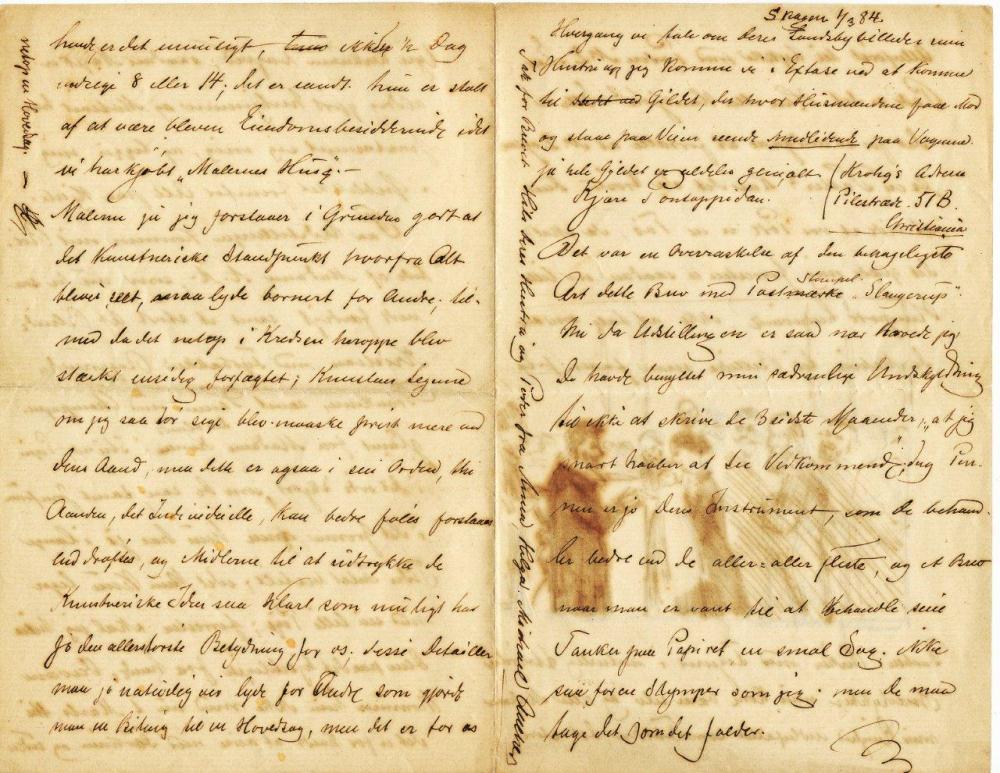 Skagen 1/3 84.
Hvergang vi tale om deres Landsbybilleder min
Hustru og jeg komme vi i Extase ved at komme
til Gildet, der hvor Husmændene faae Mad
og staae paa Vejen seende paa Vognene
ja hele Gildet er aldeles genialt
Kjære Pontoppidan.
(Krohg's Adresse
Pilestræde. 51 B.
Christiania
Det var en Overraskelse af den behageligste
Art dette Brev med Postmærke Stempel "Slangerup".
Nu da Udstillingen er saa nær havde jeg
De havde benyttet min sædvanlige Undskyldning
til ikke at skrive de 3 sidste Maaneder, "at jeg
snart haaber at see Vedkommende"; dog Pen-
nen er jo Deres Instrument, som De behand-
ler bedre end de aller-aller fleste, og et Brev
naar man er vant til at behandle sine
Tanker paa Papiret en smal Sag. Ikke
saa for en Stymper som jeg; men De maa
tage det som det falder.
hende er det umuligt, ikke ½ Dag
endsige 8 eller 14; det er sandt hun er stolt
af at være bleven Eiendomsbesidderinde idet
vi har kjøbt "Malernes Huus". –
Malerne ja jeg forstaaer i Grunden godt at
det kunstneriske Standpunkt hvorfra Alt
blev seet, maa lyde bornert for Andre; til-
med da det netop i Kredsen heroppe blev
stærkt ensidig forfægtet; Kunstens Legeme
om jeg saa tør sige blev maaske priist mere end
dens Aand, men dette er ogsaa i sin Orden, thi
Aanden, det Individuelle, kan bedre føles forstaaes
end drøftes, og Midlerne til at udtrykke de
Kunstneriske Ideer saa klart som muligt har
jo den allerstørste Betydning for os; disse Detailler
maa jo naturligviis lyde for Andre som gjorde
man en Biting til en Hovedsag, men det er for os
netop en Hovedsag. –
Tak for Brevet. Hils Deres Hustru og Poder fra Anna Helga. Michael Ancher